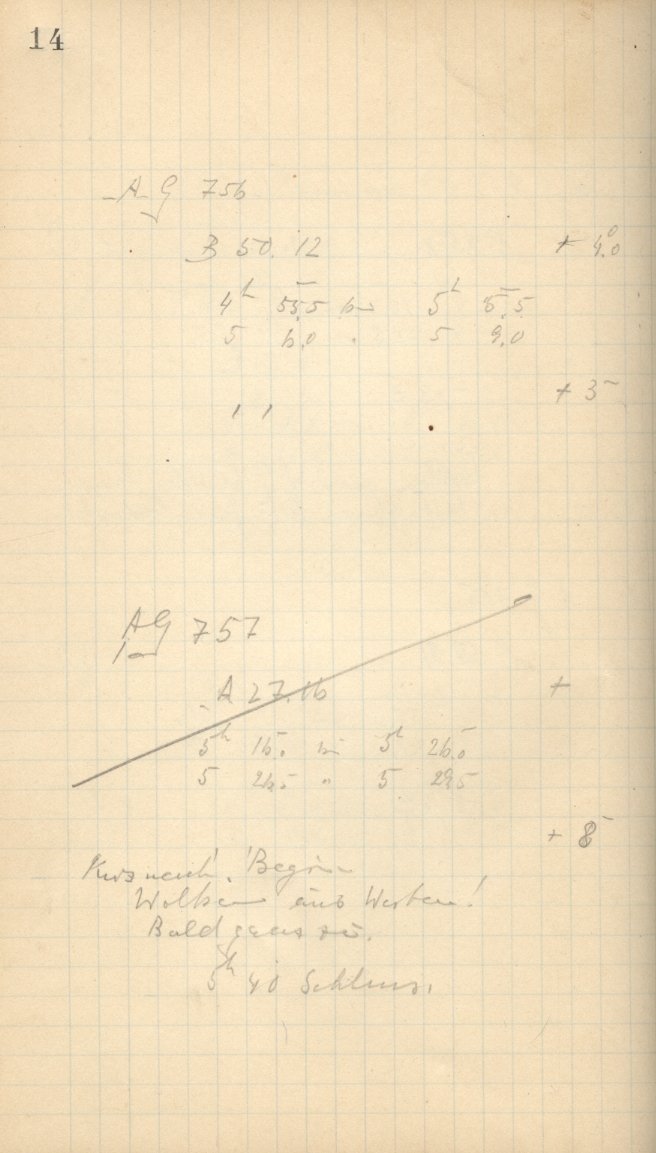 14
AG 756
B 50.12 + 4.0
4h 55.5 bis 5h 5.5
5 6.0 " 5 9.0
+ 3
AG 757
A 27.16 +
5h 16.0 bis 5h 26.0
5 26.5 " 5 29.5
+ 8
Kurz nach Beginn
Wolken aus Westen!
Bald ganz zu.
5h 40 Schluss.